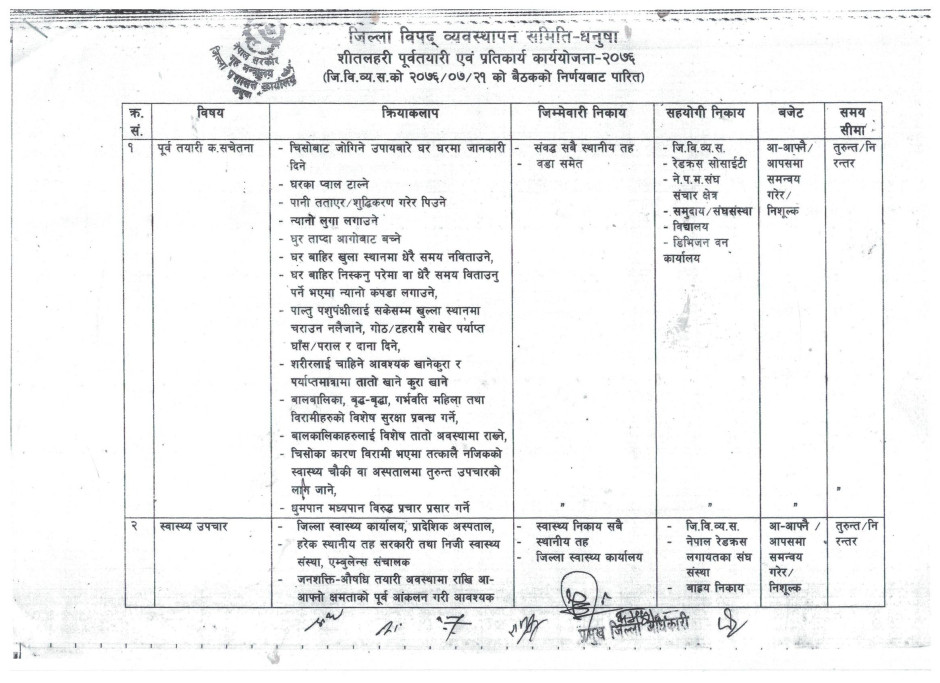 जिल्ला विपद् व्यवस्थापन समिति-धनुषा
शीतलहरी पूर्वतयारी एवं प्रतिकार्य कार्ययोजना-२०७६
(जि.वि.व्य.स.को २०७६/०७/२१ को बैठकको निर्णयबाट पारित)
नेपाल सरकार
गृह मन्त्रालय
जिल्ला प्रशासन कार्यालय
धनुषा
क्र.सं. विषय क्रियाकलाप जिम्मेवारी निकाय सहयोगी निकाय बजेट समय सीमा
१ पूर्व तयारी क.सचेतना
- चिसोबाट जोगिने उपायबारे घर घरमा जानकारी
दिने
- घरका प्वाल टाल्ने
- पानी तताएर/शुद्धिकरण गरेर पिउने
- न्यानो लुगा लगाउने
- घुर ताप्दा आगोबाट बच्ने
- घर बाहिर खुला स्थानमा धेरै समय नविताउने,
- घर बाहिर निस्कनु परेमा वा धेरै समय विताउनु
पर्ने भएमा न्यानो कपडा लगाउने,
- पाल्तु पशुपंक्षीलाई सकेसम्म खुल्ला स्थानमा
चराउन नलैजाने, गोठ/टहरामै राखेर पर्याप्त
घाँस/पराल र दाना दिने,
- शरीरलाई चाहिने आवश्यक खानेकुरा र
पर्याप्तमात्रामा तातो खाने कुरा खाने
- बालबालिका, बृद्ध-बृद्धा, गर्भवति महिला तथा
विरामीहरुको विशेष सुरक्षा प्रबन्ध गर्ने,
- बालकालिकाहरुलाई विशेष तातो अवस्थामा राख्ने,
- चिसोका कारण विरामी भएमा तत्कालै नजिकको
स्वास्थ्य चौकी वा अस्पतालमा तुरुन्त उपचारको
लागि जाने,
- धुमपान मध्यपान विरुद्ध प्रचार प्रसार गर्ने
- संवद्ध सबै स्थानीय तह
- वडा समेत
"
- जि.वि.व्य.स.
- रेडक्रस सोसाईटी
- ने.प.म.संघ
संचार क्षेत्र
- समुदाय/संघसंस्था
- विद्यालय
- डिभिजन वन
कार्यालय
"
आ-आफ्नै/
आपसमा
समन्वय
गरेर/
निशूल्क
"
तुरुन्त/नि
रन्तर
"
२ स्वास्थ्य उपचार
- जिल्ला स्वास्थ्य कार्यालय, प्रादेशिक अस्पताल,
- हरेक स्थानीय तह सरकारी तथा निजी स्वास्थ्य
संस्था, एम्बुलेन्स संचालक
- जनशक्ति-औषधि तयारी अवस्थामा राखि आ-
आफ्नो क्षमताको पूर्व आंकलन गरी आवश्यक
- स्वास्थ्य निकाय सबै
- स्थानीय तह
- जिल्ला स्वास्थ्य कार्यालय
- जि.वि.व्य.स.
- नेपाल रेडक्रस
लगायतका संघ
संस्था
- बाह्य निकाय
आ-आफ्नै /
आपसमा
समन्वय
गरेर/
निशूल्क
तुरुन्त/नि
रन्तर
प्रमुख जिल्ला अधिकारी